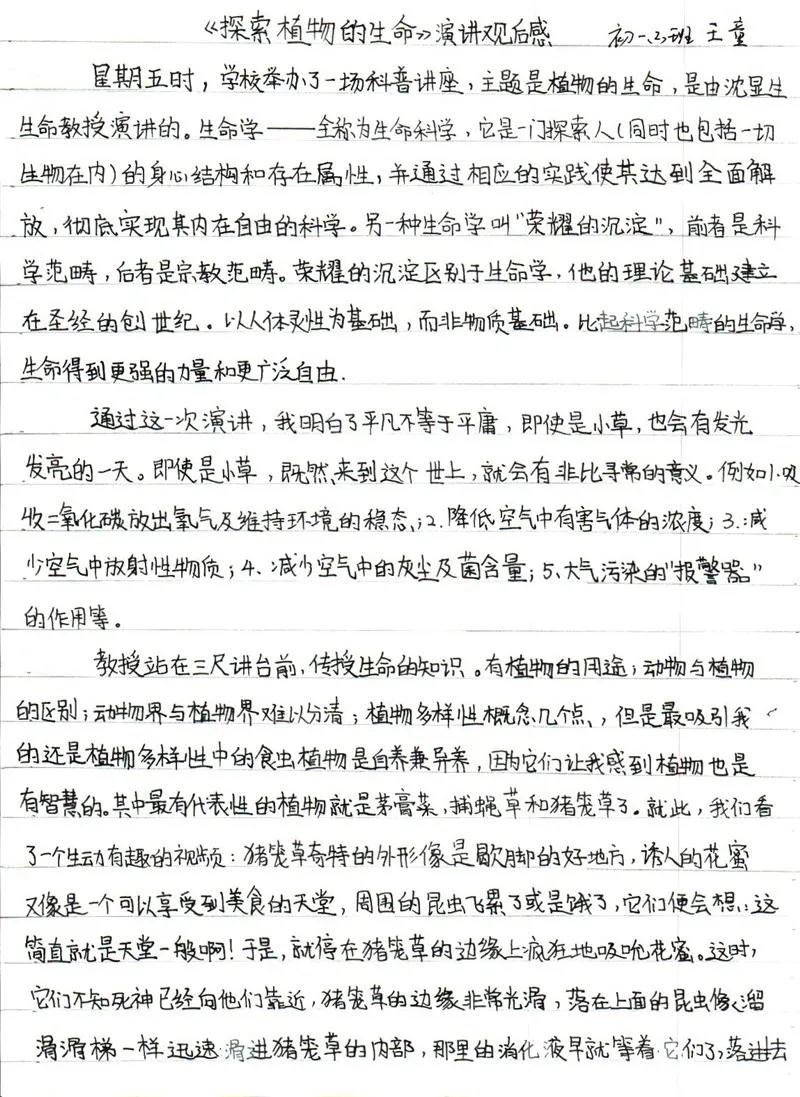 《探索植物的生命》演讲观后感 初一(3)班 王童
星期五时，学校举办了一场科普讲座，主题是植物的生命，是由沈显生
生命教授演讲的。生命学——全称为生命科学，它是一门探索人（同时也包括一切
生物在内）的身心结构和存在属性，并通过相应的实践使其达到全面解
放，彻底实现其内在自由的科学。另一种生命学叫“荣耀的沉淀”，前者是科
学范畴，后者是宗教范畴。荣耀的沉淀区别于生命学，他的理论基础建立
在圣经的创世纪。以人体灵性为基础，而非物质基础。比起科学范畴的生命学，
生命得到更强的力量和更广泛自由.
通过这一次演讲，我明白了平凡不等于平庸，即使是小草，也会有发光
发亮的一天。即使是小草，既然来到这个世上，就会有非比寻常的意义。例如1.吸
收二氧化碳放出氧气及维持环境的稳态；2.降低空气中有害气体的浓度；3.减
少空气中放射性物质；4、减少空气中的灰尘及菌含量；5、大气污染的“报警器”
的作用等。
教授站在三尺讲台前，传授生命的知识。有植物的用途；动物与植物
的区别；动物界与植物界难以分清；植物多样性概念几个点、，但是最吸引我
的还是植物多样性中的食虫植物是自养兼异养，因为它们让我感到植物也是
有智慧的。其中最有代表性的植物就是茅膏菜，捕蝇草和猪笼草了。就此，我们看
了一个生动有趣的视频：猪笼草奇特的外形像是歇脚的好地方，诱人的花蜜
又像是一个可以享受到美食的天堂，周围的昆虫飞累了或是饿了，它们便会想：这
简直就是天堂一般啊！于是，就停在猪笼草的边缘上疯狂地吸吮花蜜。这时，
它们不知死神已经向他们靠近，猪笼草的边缘非常光滑，落在上面的昆虫像溜
滑滑梯一样迅速滑进猪笼草的内部，那里的消化液早就等着它们了，落进去